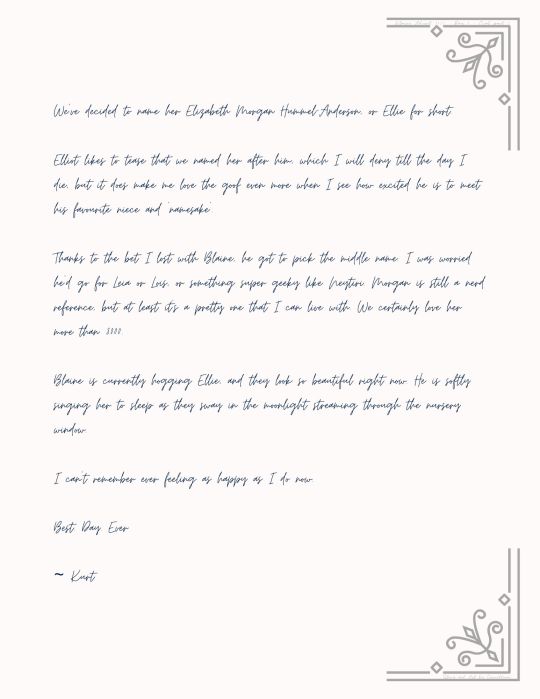 We've decided to name her Elizabeth Morgan Hummel-Anderson, or Ellie for short.
Elliot likes to tease that we named her after him, which I will deny till the day I
die, but it does make me love the goof even more when I see how excited he is to meet
his favourite niece and 'namesake'.
Thanks to the bet I lost with Blaine, he got to pick the middle name. I was worried
he'd go for Leia or Lois, or something super geeky like Neytiri. Morgan is still a nerd
reference, but at least it's a pretty one that I can live with. We certainly love her
more than 3000.
Blaine is currently hogging Ellie, and they look so beautiful right now. He is softly
singing her to sleep as they sway in the moonlight streaming through the nursery
window.
I can't remember ever feeling as happy as I do now.
Best Day Ever.
~ Kurt